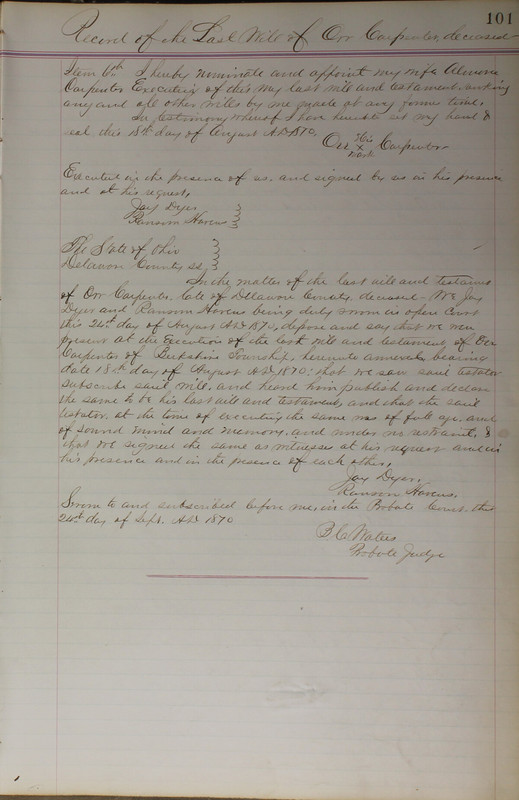 101
Record of the Last Will of Orr Carpenter, deceased
Item 6th I hereby nominate and appoint my wife Almena
Carpenter Executrix of this my last will and testament
any and all other wills by me made at any former time.
In testimony whereof I have hereunto set my hand &
seal this 18th day of August A.D. 1870.
Orr His x mark Carpenter
Executed in the presence of us. and signed by us in his presence
and at his request,
Jay Dyer
Ransom Havens
The State of Ohio
Delaware County ss.
In the matter of the last will and testament
of Orr Carpenter, late of Delaware County, deceased. We Jay
Dyer and Ransom Havens being duly sworn in open Court
this 24th day of August A.D. 1870, depose and say that we were
present at the Execution of the last will and testament of Orr
Carpenter of Berkshire Township, hereunto annexed, bearing
date 18th day of August A.D. 1870. that we saw said testator
subscribe said will, and heard him publish and declare
the same to be his last will and testament, and that the said
testator, at the time of executing the same was of full age. and
of sound mind and memory. and under no restraint, &
that we signed the same as witnesses at his request and in
his presence and in the presence of each other,
Jay Dyer.
Ransom Havens.
Sworn to and subscribed before me, in the Probate Court. this
24th day of Sept. A.D. 1870
B. C. Waters
Probate Judge